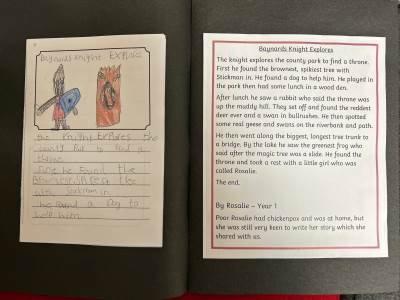 Baynards Knight Explore
the Knight Explores the
county Park to find a
throne
First he found the
brownest, spikiest tree
with stickman in.
he found a Dog to
help him.
Baynards Knight Explores
The knight explores the county park to find a throne.
First he found the brownest, spikiest tree with
Stickman in. He found a dog to help him. He played in
the park then had some lunch in a wood den.
After lunch he saw a rabbit who said the throne was
up the muddy hill. They set off and found the reddest
deer ever and a swan in bullrushes. He then spotted
some real geese and swans on the riverbank and path.
He then went along the biggest, longest tree trunk to
a bridge. By the lake he saw the greenest frog who
said after the magic tree was a slide. He found the
throne and took a rest with a little girl who was
called Rosalie.
The end.
By Rosalie – Year 1
Poor Rosalie had chickenpox and was at home, but she
was still very keen to write her story which she
shared with us.